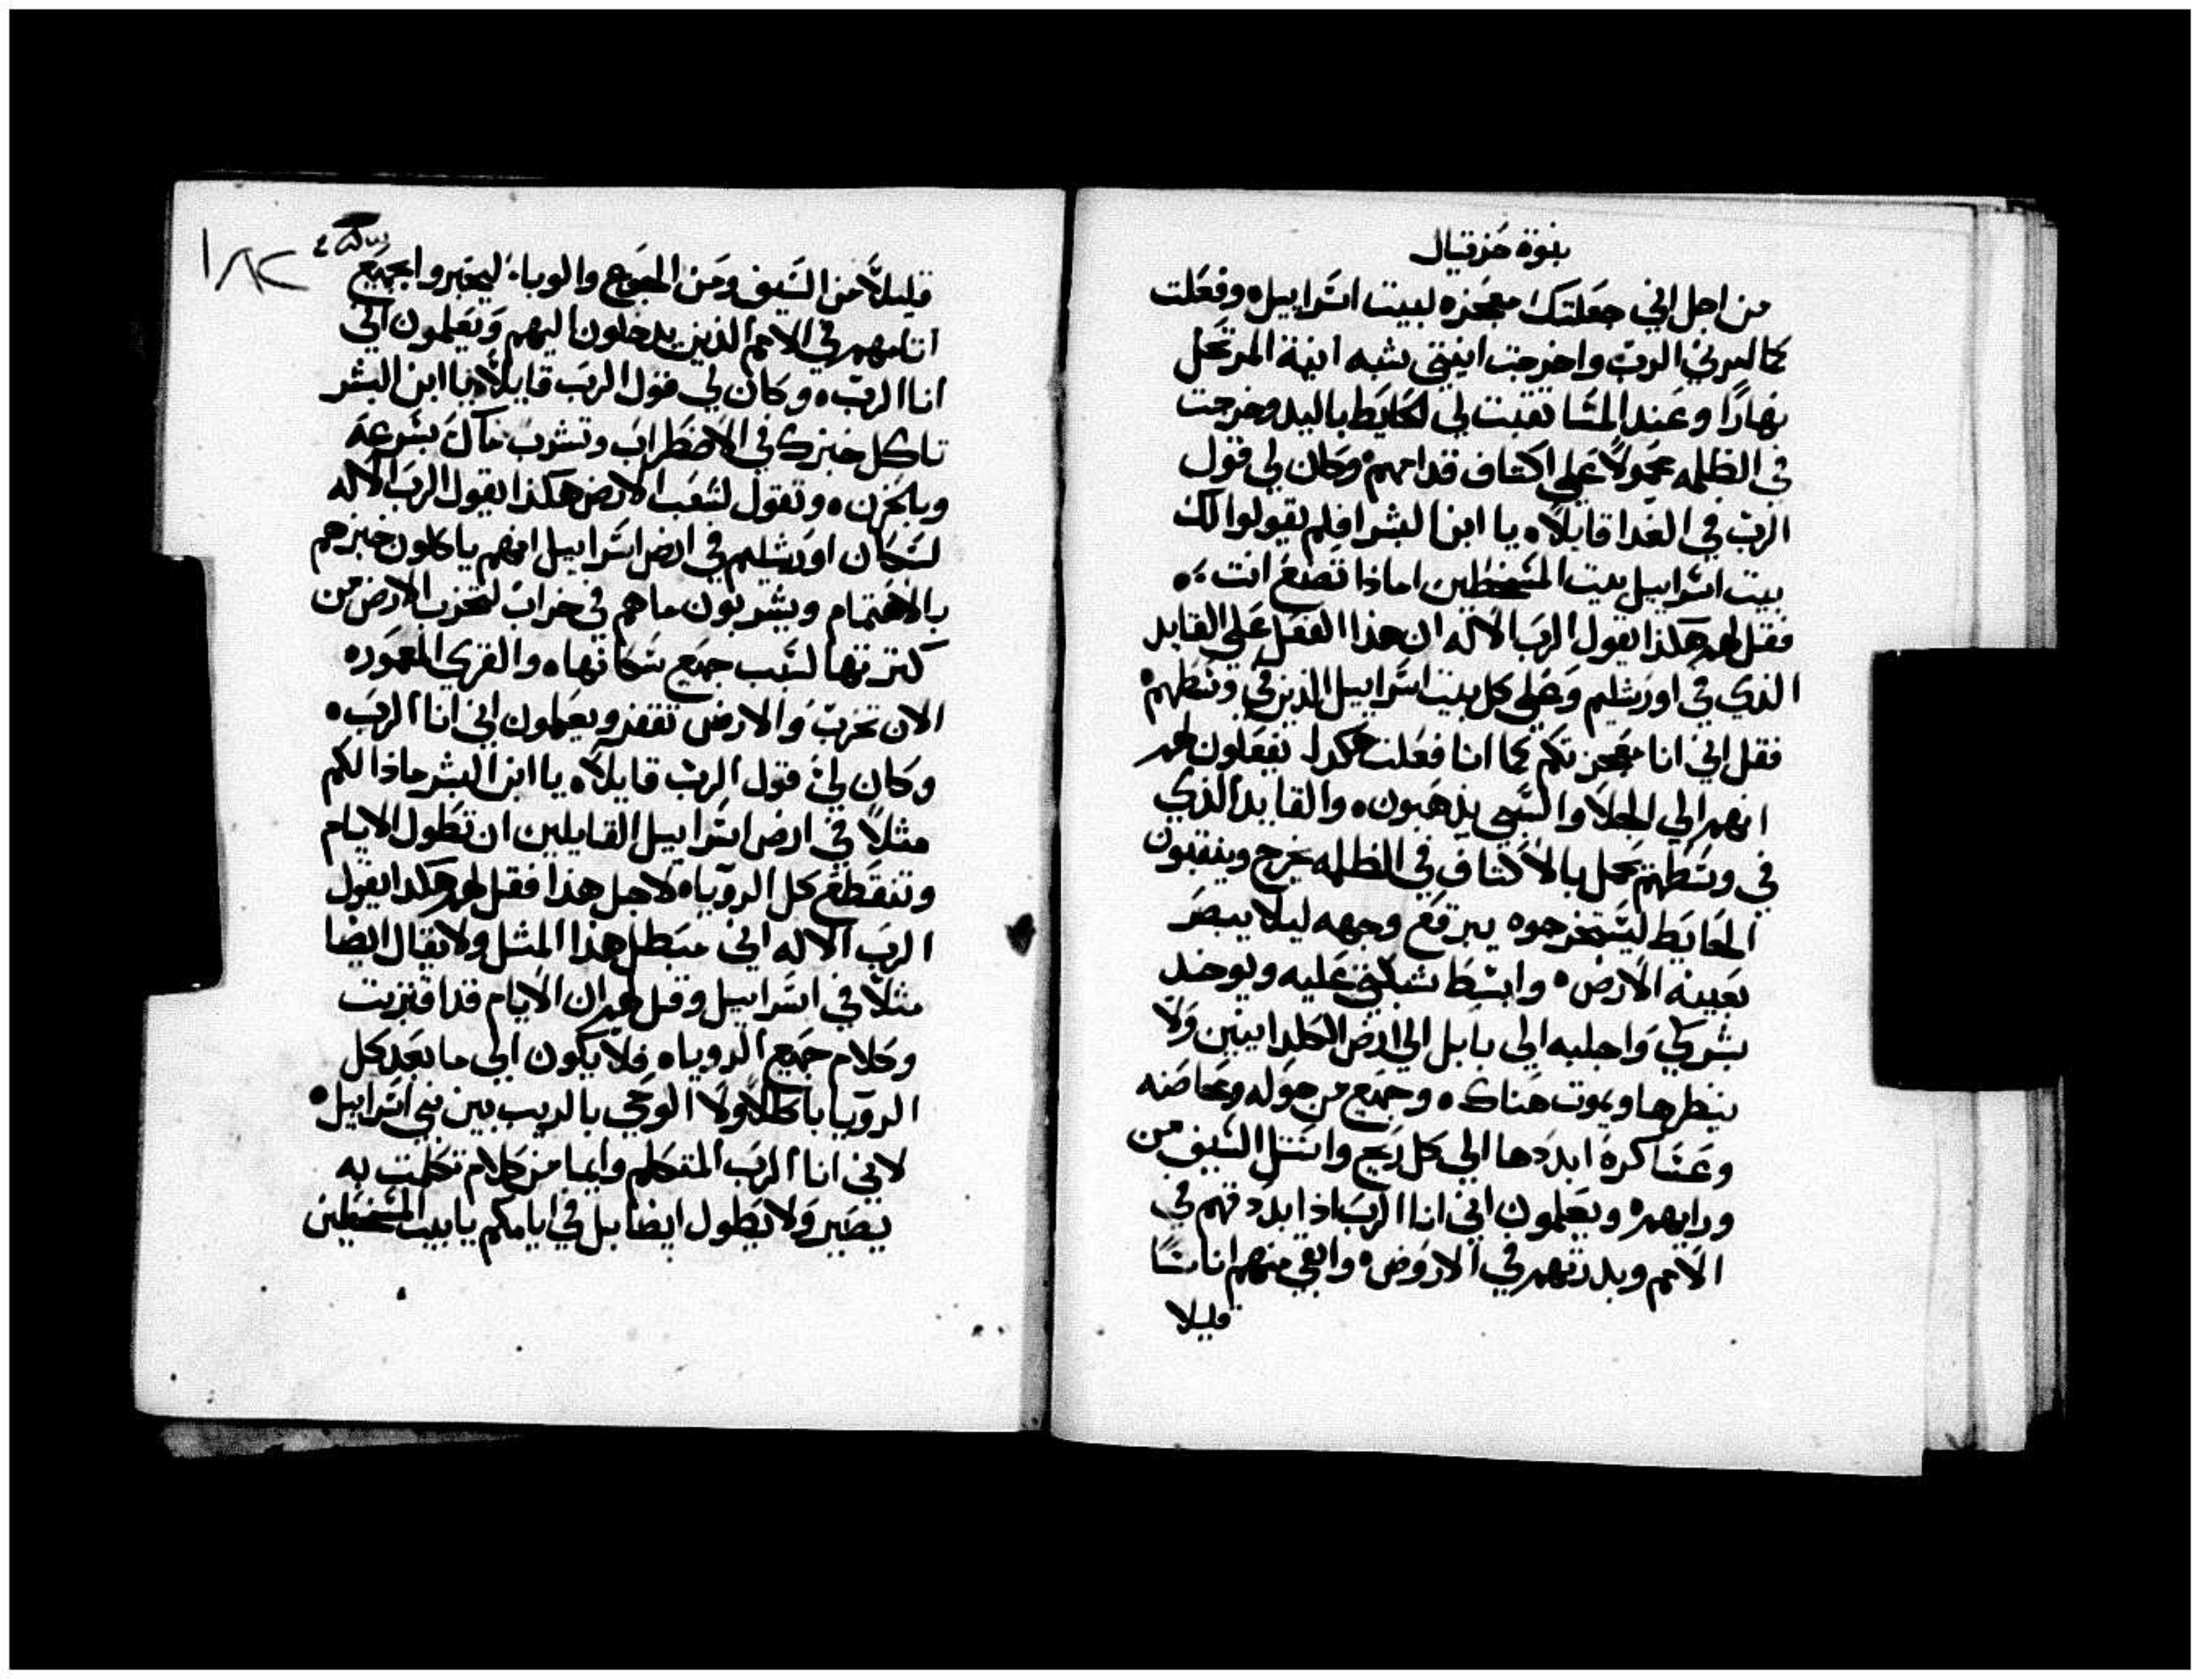 بنوة حزقيال
من اجل اني جعلتك معجزه لبيت اسراييل ه وفعلت
كما امرني الرب واخرجت انيتي شبه انية المرتحل
نهارًا وعند المسا نقبت لي الحايط باليد وخرجت
في الظلمه محمولاً علي اكتاف قدامهم ه وكان لي قول
الرب في الغدا قايلاً ه يا ابن البشر افلم يقولوا لك
بيت اسراييل بيت المسخطين اماذا تصنع انت ه
فقل لهم هكذا يقول الرب الاله ان هذا الفعل علي القايد
الذي في اورشليم وعلي كل بيت اسراييل الذين في وسطهم ه
فقل اني انا معجزتكم كما انا فعلت هكدا يفعلون لهم
انهم الي الجلا والسبي يذهبون ه والقايد الذي
في وسطهم يحمل بالاكتاف في الظلمه يخرج وينقبون
الحايط ليستخرجوه يبرقع وجهه ليلا يبصر
بعينه الارض ه وابسط شبكتي عليه ويوخد
بشركي واجلبه الي بابل الي ارض الكلدانيين ولا
ينظرها ويموت هناك ه وجميع من حوله وعاضه
وعساكره ابددها الي كل ريح واستل السيف من
ورايهم ه ويعلمون اني انا الرب اذا بددتهم في
الامم وبددتهم في الاروض ه وابقي منهم اناسًا
قليلا
١٨٢
قليلاً من السيف ومن الجوع والوباء ليخبروا بجميع
اثامهم في الامم الذين يدخلون اليهم ويعلمون اني
انا الرب ه وكان لي قول الرب قايلاً يا ابن البشر
تاكل خبزك في الاضطراب وتشرب ماك بسرعه
وبالحزن ه وتقول لشعب الارض هكذا يقول الرب الاله
لسكان اورشليم في ارض اسراييل انهم ياكلون خبزهم
بالاهتمام ويشربون ماهم في خراب لتخرب الارض من
كترتها لسبب جميع سكانها ه والقري المعموره
الان تخرب والارض تقفر ويعلمون اني انا الرب ه
وكان لي قول الرب قايلاً ه يا ابن البشر ماذا لكم
مثلاً في ارض اسراييل القايلين ان تطول الايام
وتنقطع كل الرويا ه لاجل هذا فقل لهم هكدا يقول
الرب الاله اني مبطل هذا المثل ولا يقال ايضا
مثلاً في اسراييل وقل لهم ان الايام قد اقتربت
وكلام جميع الرويا ه فلا يكون الي ما بعد كل
الرويا باطلاً ولا الوحي بالريب بين بني اسراييل ه
لاني انا الرب المتكلم وايما من كلام تكلمت به
يصير ولا يطول ايضا بل في ايامكم يا بيت المسخطين